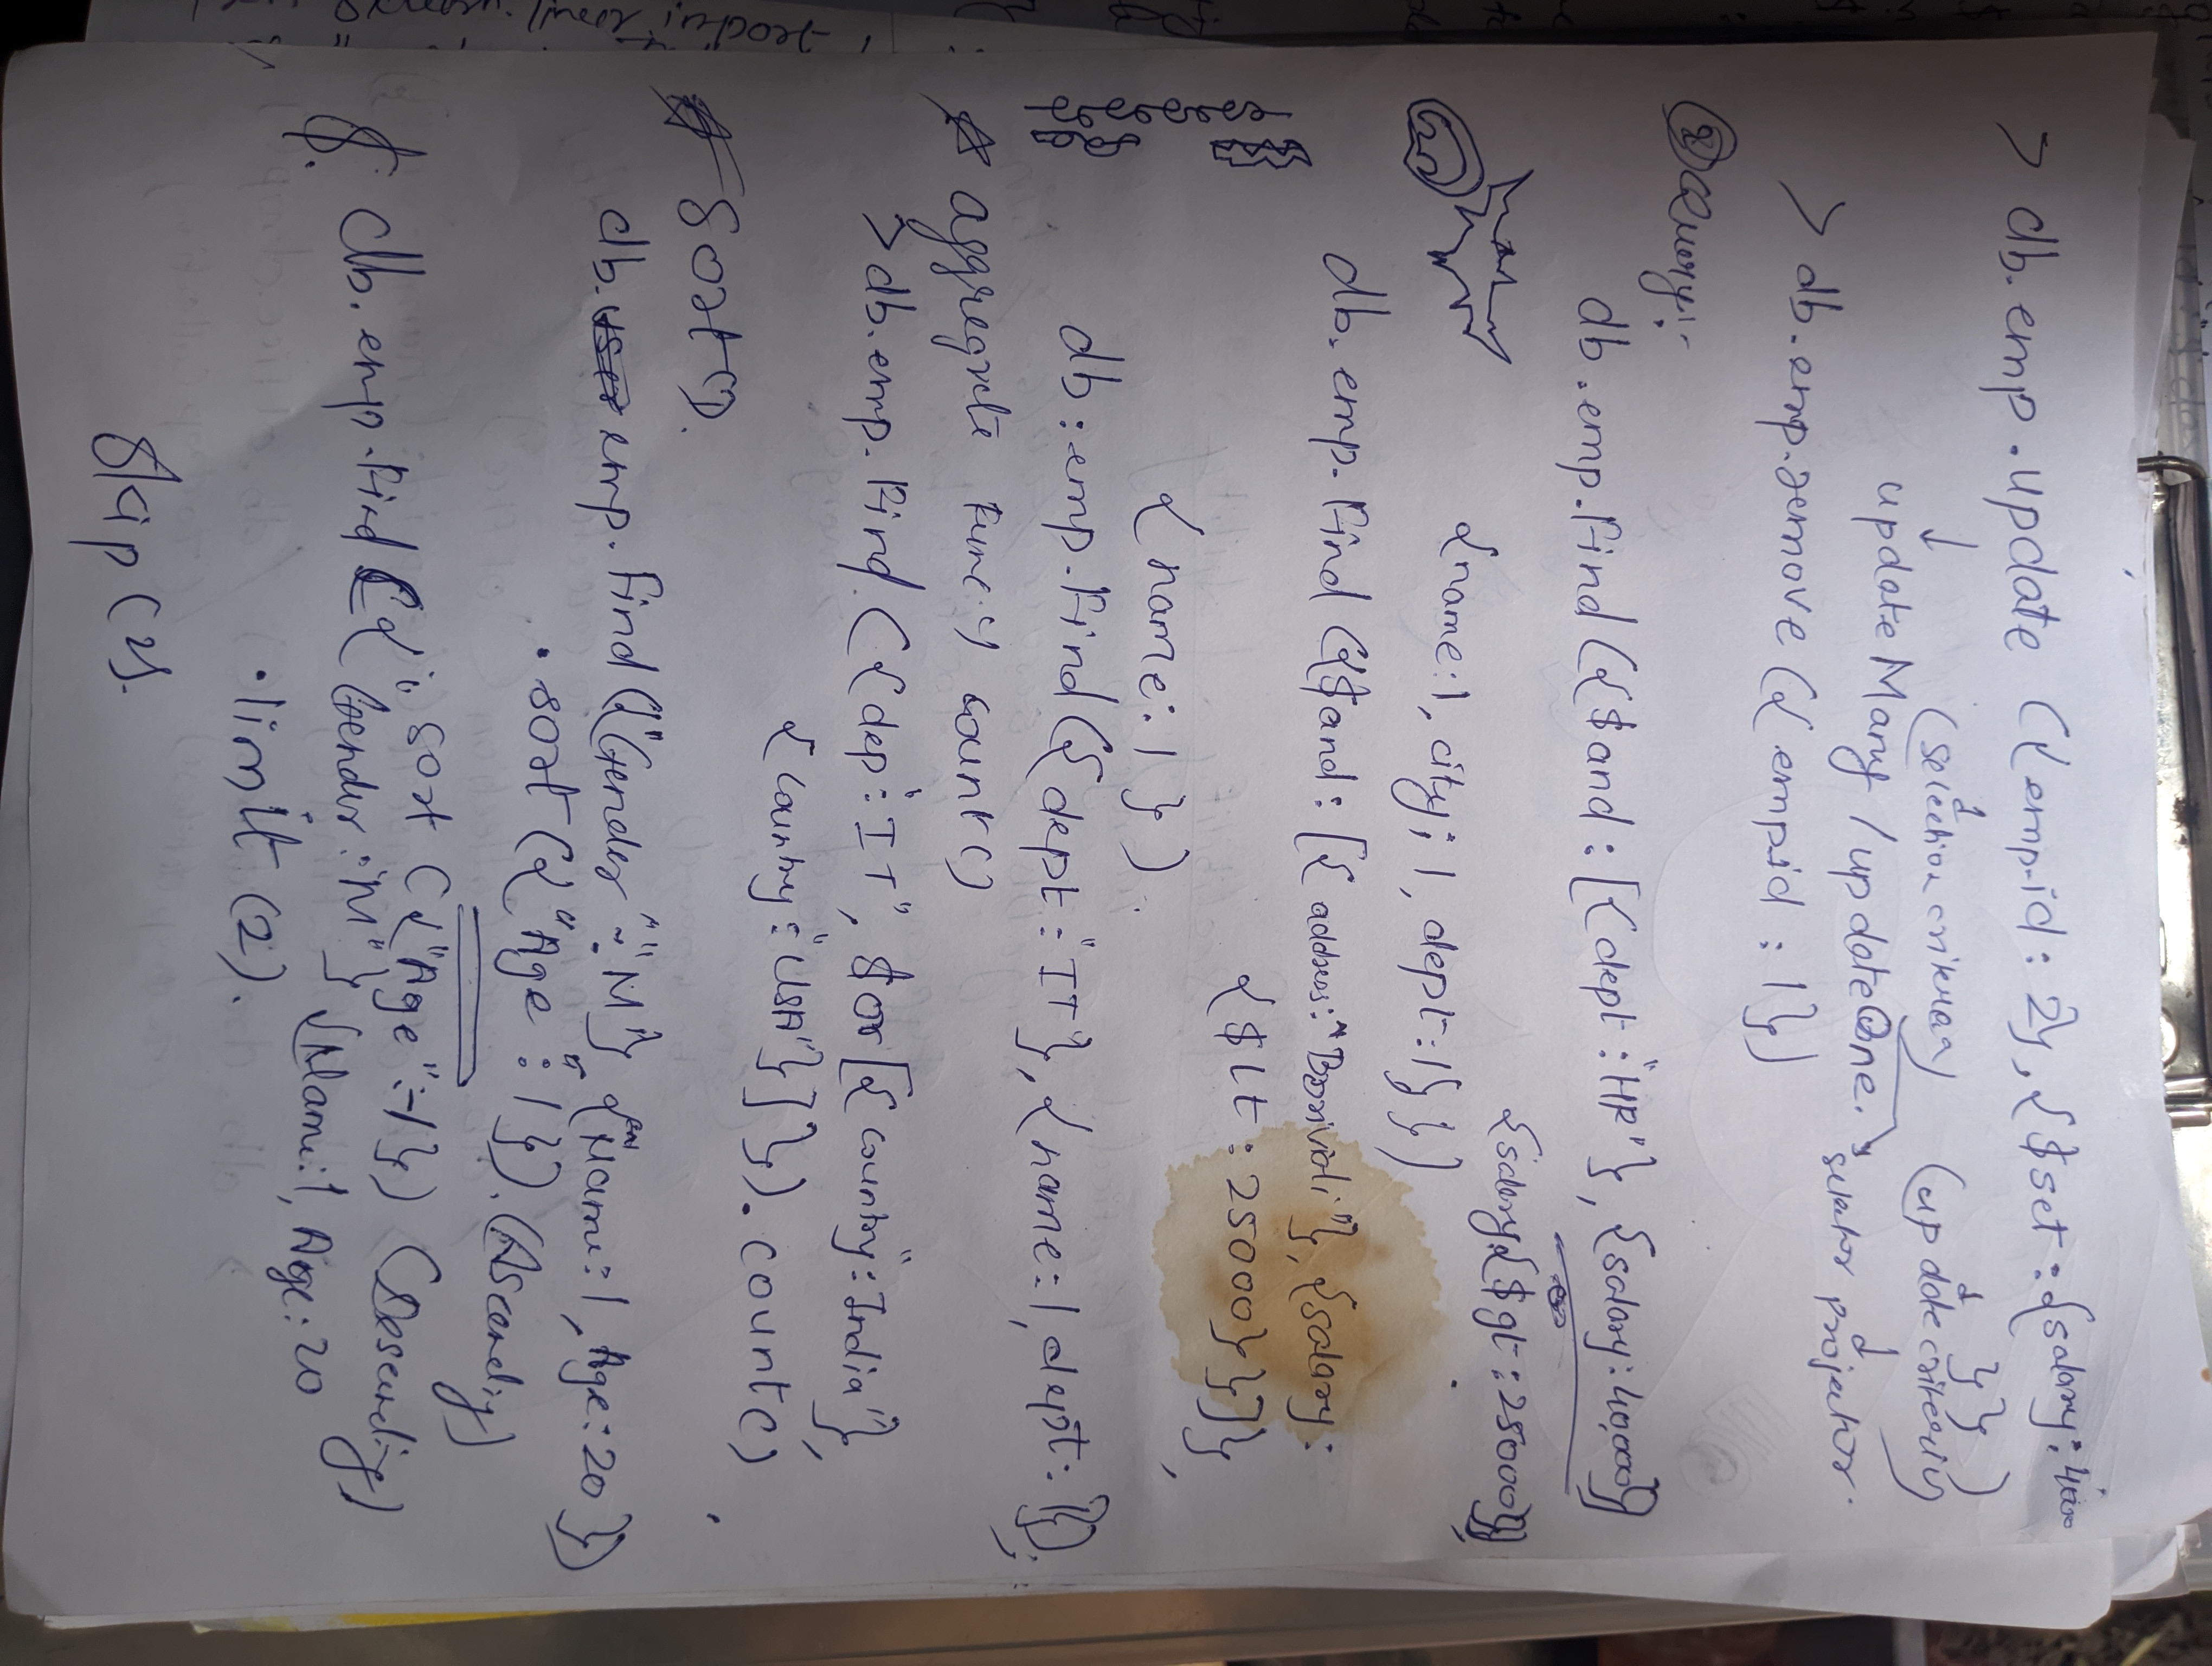 > db.emp.update ({empid: 2}, {$set: {salary: 4000
}} )
(selection criteria) (update criteria)
updateMany / updateOne. selector projector.
> db.emp.remove ({empid : 1})
Query:-
db.emp.find ({$and: [{dept: "HR"}, {salary: 40,000}]
{salary{$gt: 25000}]}
{name:1, city:1, dept:1}})
db.emp.find ({$and: [{address: "Borivali"}, {salary:
{$Lt: 25000}}]},
{name: 1})
db:emp.find ({dept: "IT"}, {name: 1, dept: 1});
☆ aggregate func") count()
>db.emp.find ({dep: "IT", $or [{country: "India"},
{country: "USA"}]}). count()
☆ Sort().
db.emp.find ({"Gender": "M"} {Name: 1, Age: 20})
.sort({"Age": 1}). (Ascendig)
: sort ({"Age": -1}) (Descendig)
db.emp.find({Gender: "M"} {Name: 1, Age: 20
.limit (2).
Skip (2).